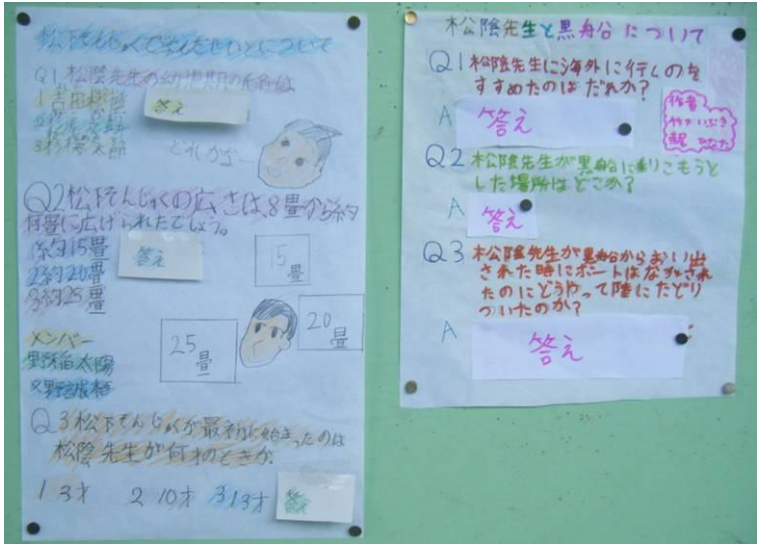 Q1 松陰先生の幼少期の名前は
1吉田松陰
3杉梅太郎
答え
どれかな
Q2松下そんじゅくの広さは、8畳から約
何畳に広げられたでしょう。
1約15畳
2約20畳
3約25畳
答え
15畳
20畳
25畳
メンバー
Q3松下そんじゅくが最初に始まったのは
松陰先生が何才のときか
1 3才 2 10才 3 13才
答え
松陰先生と黒舟について
Q1松陰先生に海外に行くのを
すすめたのはだれか?
A 答え
作者
Q2松陰先生が黒舟に乗りこもうと
した場所はどこか?
A 答え
Q3松陰先生が黒舟からおい出
された時にボートはながされ
たのにどうやって陸にたどり
ついたのか?
A 答え